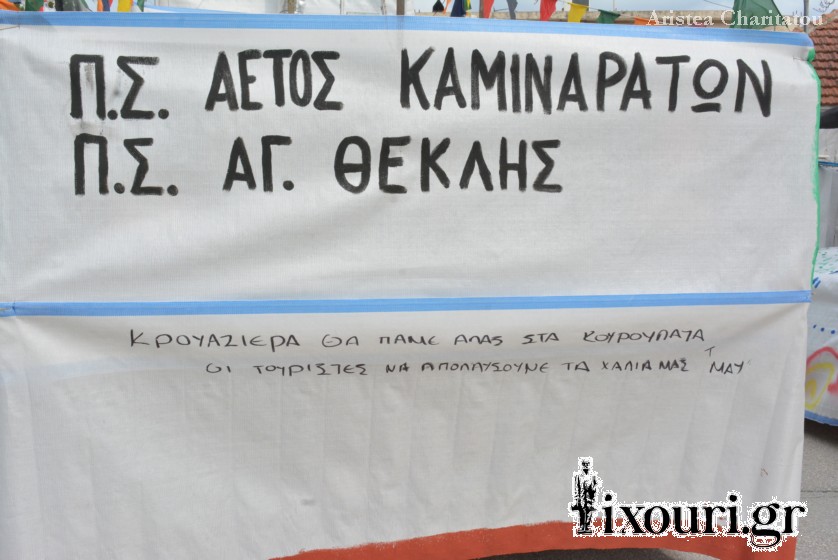 Aristea Charitatou
Π.Σ. ΑΕΤΟΣ ΚΑΜΙΝΑΡΑΤΩΝ
Π.Σ. ΑΓ. ΘΕΚΛΗΣ
ΚΡΟΥΑΖΙΕΡΑ ΘΑ ΠΑΜΕ ΑΠΑΣ ΣΤΑ ΚΟΥΡΟΥΠΑΤΑ
ΟΙ ΤΟΥΡΙΣΤΕΣ ΝΑ ΑΠΟΛΑΥΣΟΥΝΕ ΤΑ ΧΑΛΙΑ ΜΑΣ
fixouri.gr